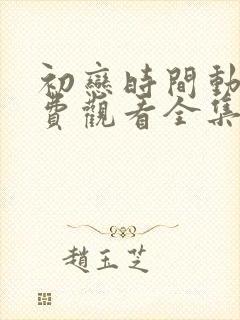 初戀時間動
費觀看全集
趙玉芝